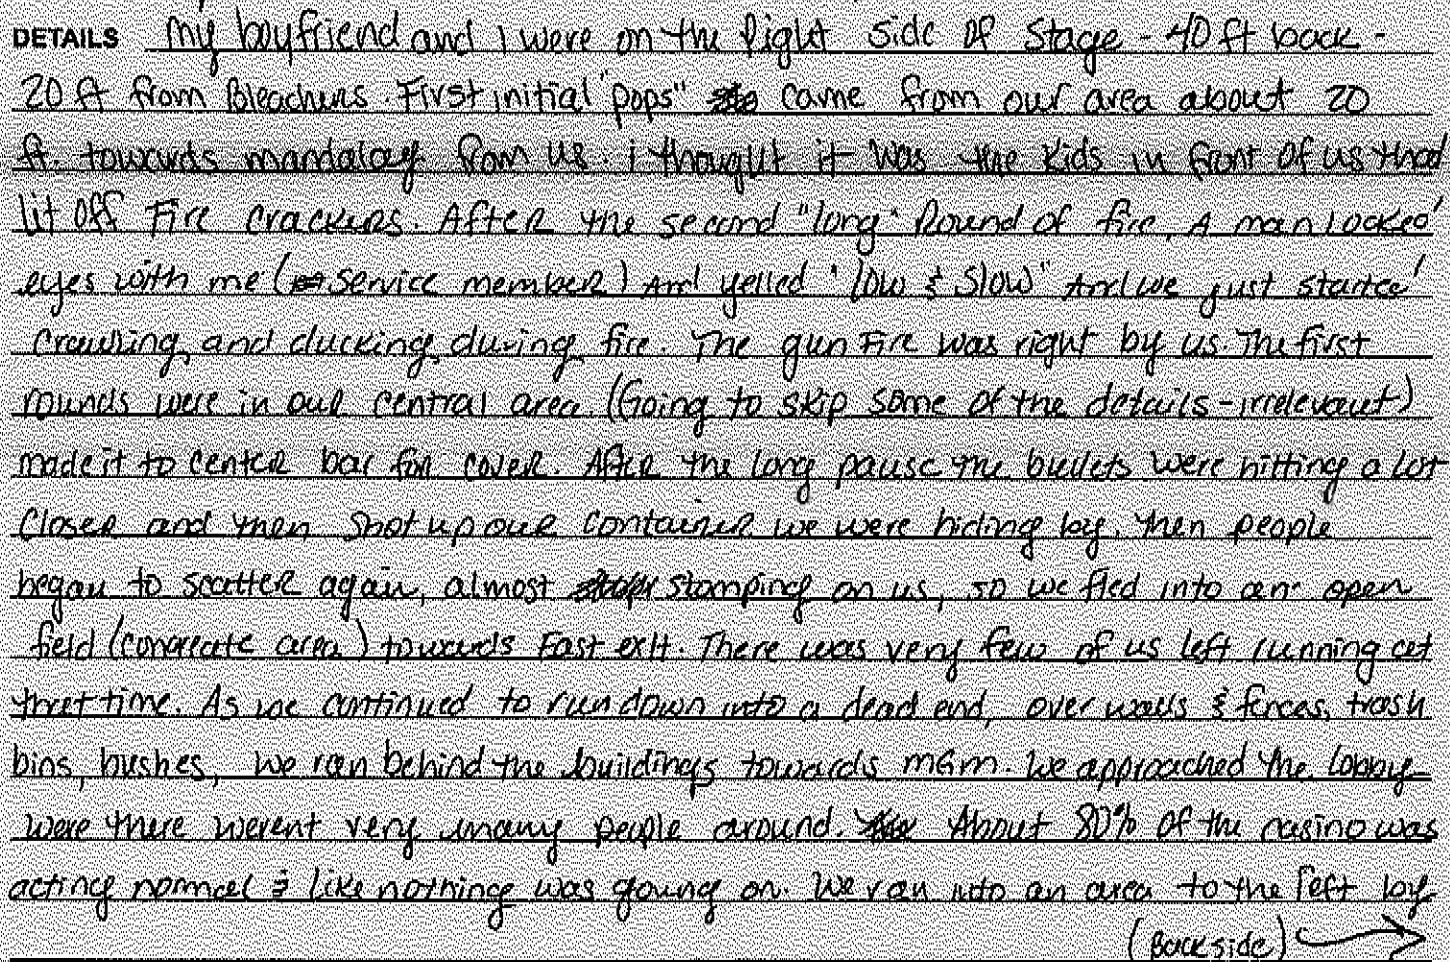 DETAILS my boyfriend and I were on the Right side of stage - 40 ft back -
20 ft from Bleachers. First initial "pops" came from our area about 20
ft. towards mandalay from us. i thought it was the kids in front of us that
lit off Fire crackers. After the second "long" Round of fire, A man locked
eyes with me (service member) And yelled "low & slow" And we just started
crawling, and ducking, during fire. The gun Fire was right by us. The first
rounds were in our central area. (Going to skip some of the details - irrelevant)
made it to center bar for cover. After the long pause the bullets were hitting a lot
closer and then shot up our container we were hiding by. Then people
began to scatter again, almost stomping on us, so we fled into an open
field (concreate area) towards East exit. There was very few of us left running at
that time. As we continued to run down into a dead end, over walls & fences, trash
bins, bushes, we ran behind the buildings towards mGm. We approached the lobby
were there werent very many people around. About 80% of the casino was
acting normal & like nothing was going on. We ran into an area to the left by
(Backside)